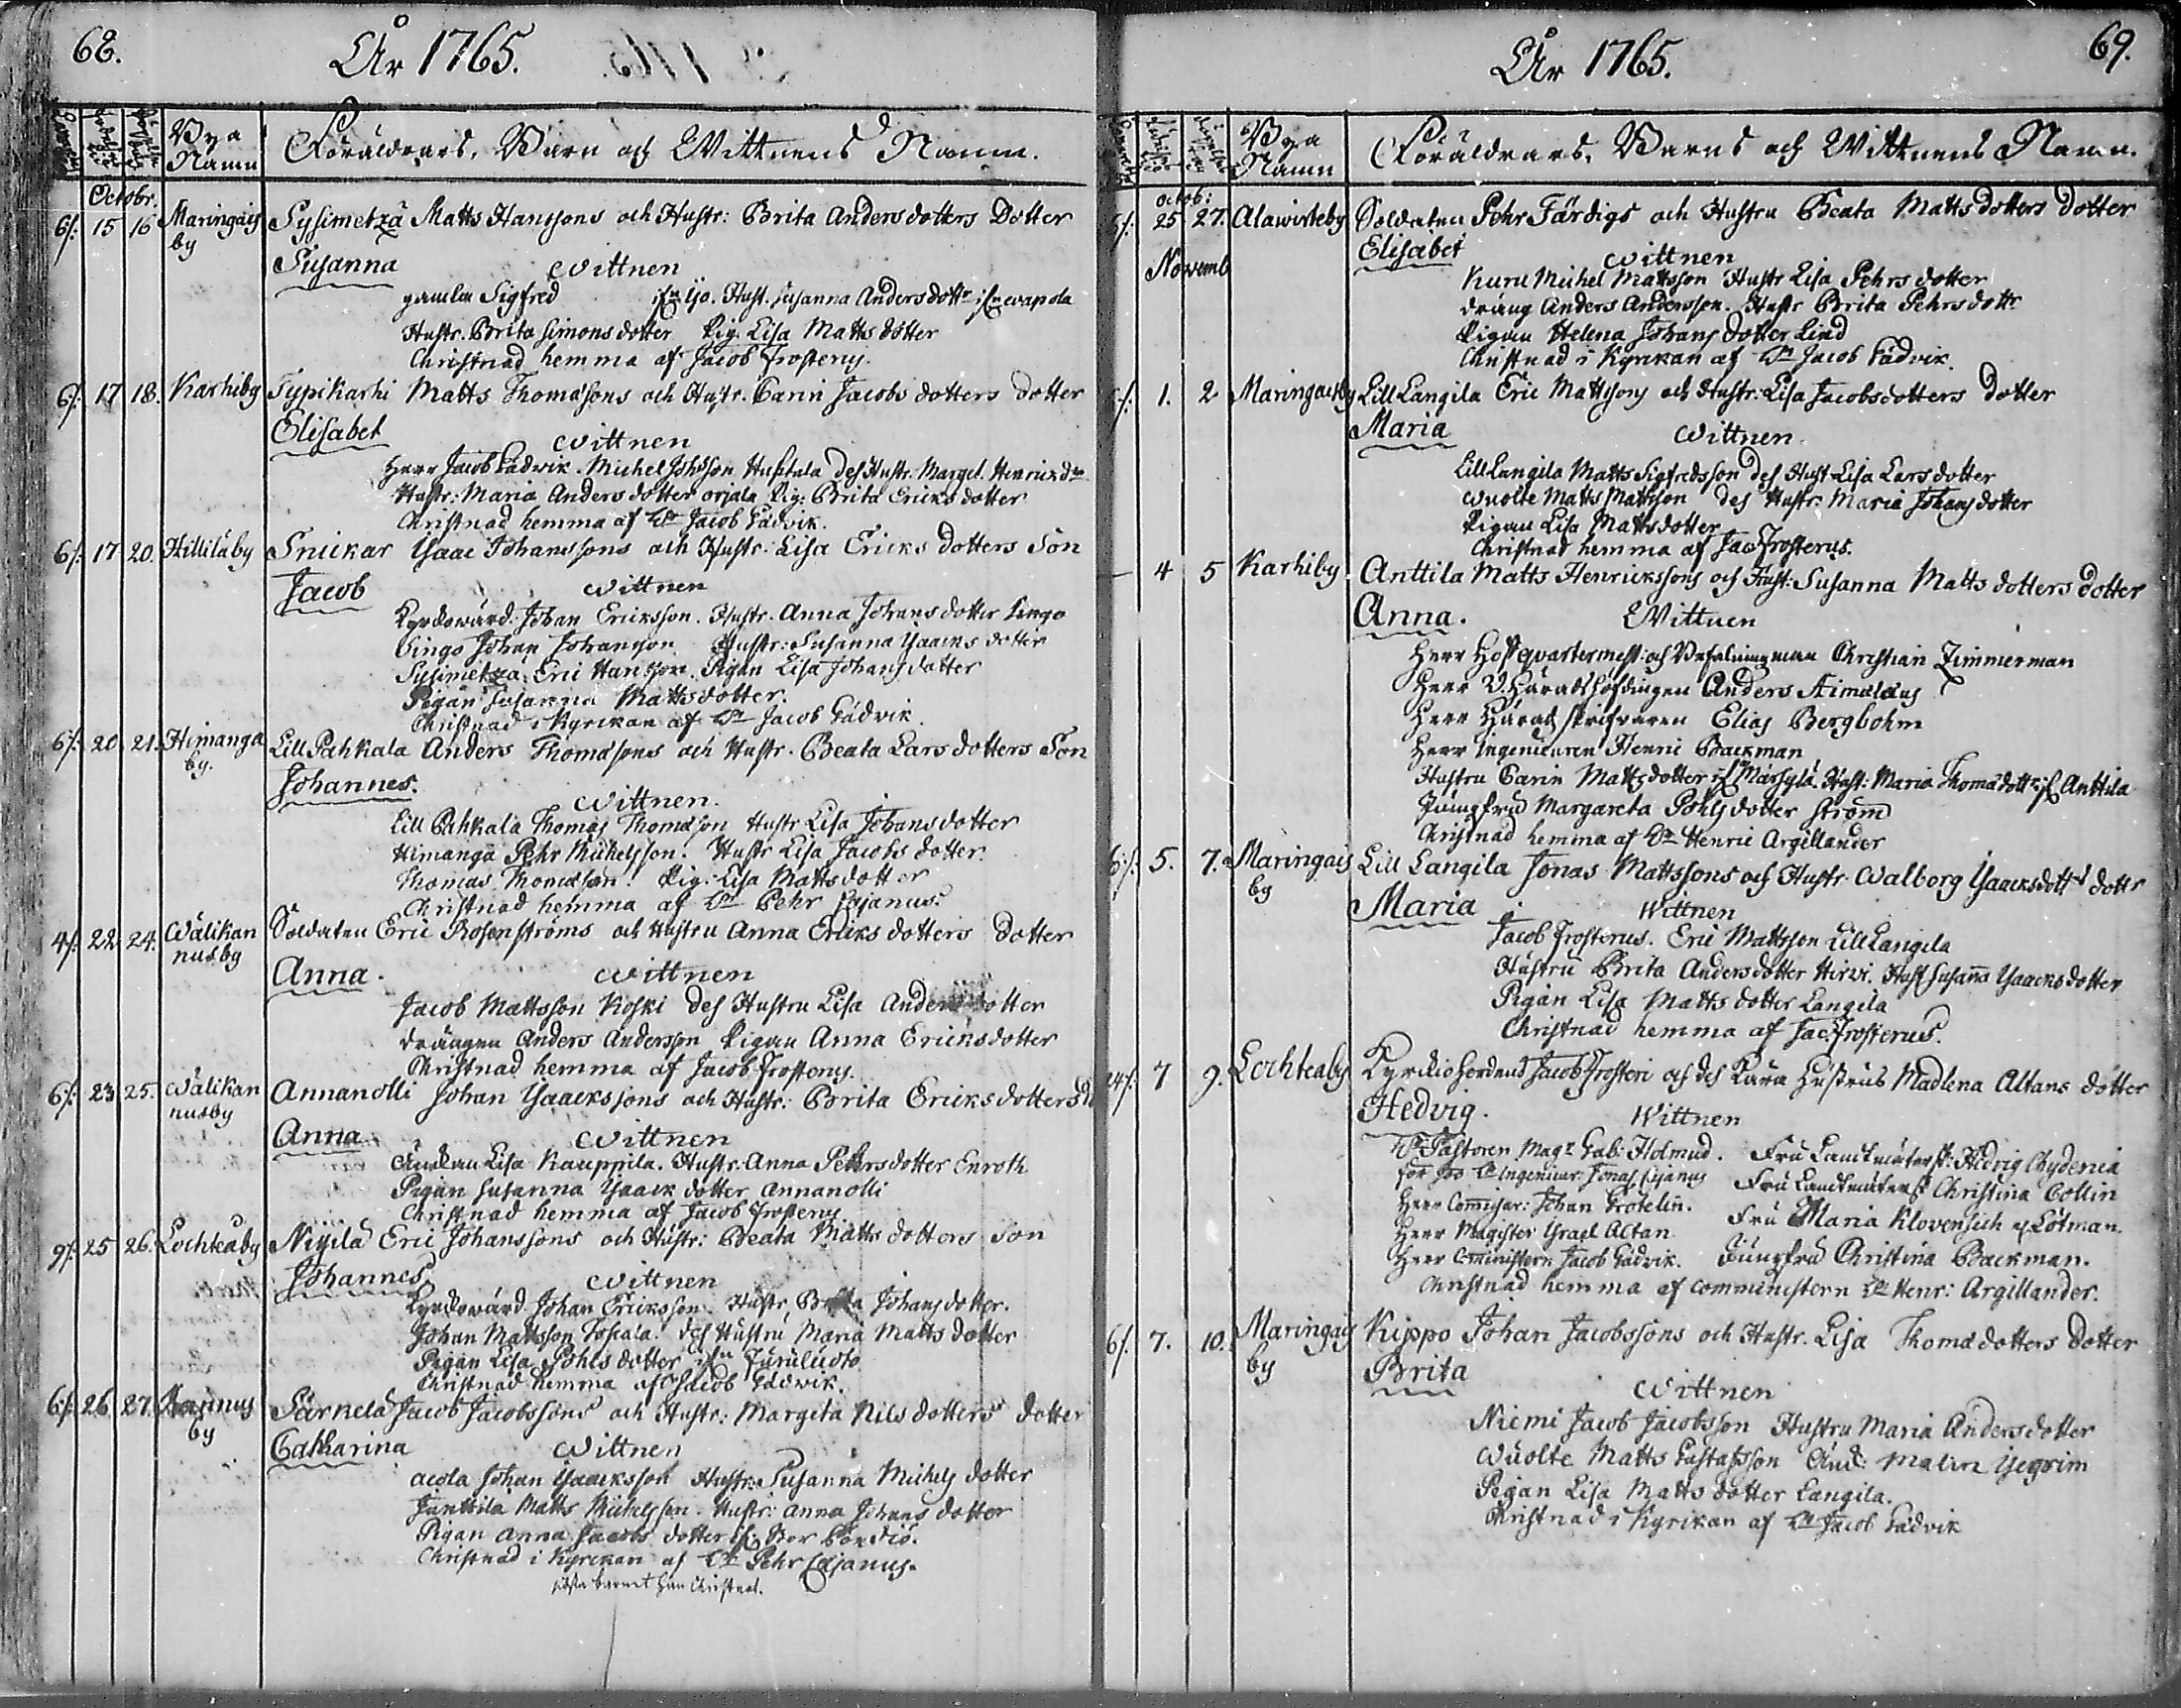 68.
År 1765.
Bya Namn
Föräldrars, Barn och Wittnens Namn.
Octobr.
6/: 15 16 Maringais by Sysimetzä Matts Hanssons och Hustr: Brita Anders dotters Dotter
Susanna Wittnen
gamla Sigfred Hust. Susanna Anders dottr ifrån wapola
Hustr. Brita Simons dotter Pig. Lisa Matts dotter
Christnad hemma af Jacob Frosterus.
6/: 17 18. Karhiby Typikarhi Matts Thomæsons och Hustr. Carin Jacobs dotters dotter
Elisabet Wittnen
Herr Jacob Gadvik. Michel Johsson Huhtala des Hustr. Marget. Henrics dr
Hustr: Maria Anders dotter orjala Pig: Brita Erics dotter
Christnad hemma af Dn Jacob Gadvik.
6/: 17 20. Hillilaby Snickar Isaac Johanssons och Hustr: Lisa Erics dotters Son
Jacob Wittnen
Kyrckowärd. Johan Ericsson. Hustr. Anna Johans dotter Lingo
Johan Johansson Hustr: Susanna Isaacks dotter
Susimetza: Eric Hansson. Pigan Lisa Johans dotter
Pigan Susanna Matts dotter.
Christnad i Kyrckan af Dn Jacob Gadvik.
6/: 20 21. Himanga by. Lill Pahkala Anders Thomæsons och Hustr. Beata Lars dotters Son
Johannes. Wittnen.
Lill Pahkala Thomas Thomæson Hustr Lisa Johans dotter
Himanga Pehr Michelsson. Hustr Lisa Jacobs dotter.
Thomas Thomæson. Pig: Lisa Matts dotter
Christnad hemma af Dn Pehr Cajanus.
4/: 22 24. Wälikan nus by Soldaten Eric Rosenströms och Hustru Anna Erics dotters Dotter
Anna. Wittnen
Jacob Mattsson Koski des Hustru Lisa Anders dotter
drängen Anders Andersson Pigan Anna Ericsdotter
Christnad hemma af Jacob Frosterus.
6/: 23 25. Wälikan nusby Annanolli Johan Isaackssons och Hustr: Brita Ericsdotters
Anna Wittnen
Änckan Lisa Kauppila. Hustr: Anna Pehrsdotter Enroth
Pigan Susanna Isaack dotter Annanolli
Christnad hemma af Jacob Frosterus
9/: 25 26. Lochteaby Niyilä Eric Johanssons och Hustr: Beata Matts dotters Son
Johannes Wittnen
Kyrckowärd Johan Ericsson. Hustr Brita Johans dotter.
Johan Mattsson Toskala. des Hustru Maria Matts dotter
Pigan Lisa Pohls dotter ifrn Juruludto
Christnad hemma af Jacob Gadwik.
6/: 26 27. Kannus by Särkelä Jacob Jacobssons och Hustr: Margeta Nils dotters dotter
Catharina Wittnen
acola Johan Isaacksson Hustr: Susanna Michels dotter
Junttila Matts Michelsson. Hustr: Anna Johans dotter
Pigan Anna Jacobs dotter
Christnad i Kyrckan af Dn Pehr Cajanus.
sidsta barnet han Christnat.
69.
År 1765.
Bya Namn
Föräldrars, Barns och Wittnens Namn.
octob:
6/: 25 27. Alawirteby Soldaten Pehr Färdigs och Hustru Beata Matts dotters dotter
Elisabet Wittnen
Novemb
Michel Mattsson Hustr Lisa Pehrs dotter
dräng Anders Andersson. Hustr Brita Pehrs dottr
Pigan Helena Johans dotter Lind
Christnad i Kyrckan af Dn Jacob Gadvik.
6/: 1. 2 Maringais by Lill Langila Eric Mattsons och Hustr: Lisa Jacobsdotters dotter
Maria Wittnen.
Lill Langila Matts Sigfredsson des Hust Lisa Lars dotter
Wuolte Matts Mattsson des Hustr: Maria Johans dotter
Pigan Lisa Matts dotter
Christnad hemma af Jac Frosterus.
4 5 Karhiby Anttila Matts Henrickssons och Hust: Susanna Matts dotters dotter
Anna. Wittnen
Herr Hofquartermest: och Befalningsman Christian Zimmerman
Herr V. Häradshöfdingen Anders Aimelæus
Herr Härads skrifvaren Elias Bergbohm
Herr Ingenieuren Henric Backman
Hustru Carin Matts dotter ifrn Marsylä. Hust: Maria Thomæ dottr ifr Anttila
Jungfrud Margareta Pohls dotter Ström
Christnad hemma af Dn Henric Argillander
6/: 5. 7. Maringais by Lill Langila Jonas Mattssons och Hustr Walborg Isaacksdottrs dottr
Maria Wittnen
Jacob Frosterus. Eric Mattsson Lill Langila
Hustru Brita Andersdotter Hirvi. Hust Susanna Isaacks dotter
Pigan Lisa Matts dotter Langila
Christnad hemma af Jac: Frosterus.
24/: 7 9. Lochteaby Kyrckioherdens Jacob Frosteri och des Kära Hustrus Madlena Altans dotter
Hedvig. Wittnen
Pastoren Magr Gab: Holmud. Fru Landtmäterst: Hedvig Chydenia
Ingenieur Jonas Cajanus Fru Landtmäterst Christina Collin
Herr Comisar: Johan Grotelin. Fru Maria Klovensich Lötman.
Herr Magister Israel Altan
Herr Cministern Jacob Gadvik. Jungfru Christina Backman.
Christnad hemma af comministern Dn Henr: Argillander.
6/. 7. 10. Maringais by Kippo Johan Jacobssons och Hustr. Lisa Thomæ dotters Dotter
Brita Wittnen
Niemi Jacob Jacobsson Hustru Maria Anders dotter
Wuolte Matts Gustafsson Änck: Malin
Pigan Lisa Matts dotter Langila.
Christnad i Kyrckan af Dn Jacob Gadvik